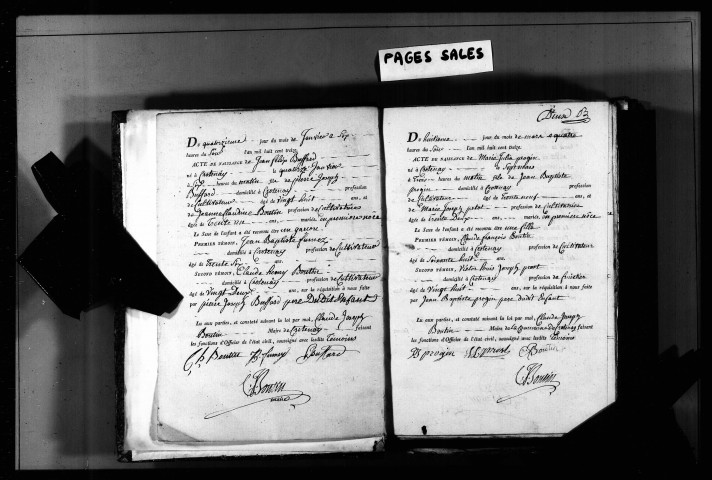 PAGES SALES
Du quatorzieme jour du mois de Janvier à Six
heures du Soir l'an mil huit cent treize.
ACTE DE NAISSANCE de Jean Buffard
né à Crotenay le quatorze Janvier
à heures du matin fils de pierre Joseph
Buffard domicilié à Crotenay profession
de Cultivateur âgé de vingt huit ans, et
de Jeanne Claudine Boutin profession de Cultivateurs
âgée de Trente ans, mariés, en première nôce
Le Sexe de l'enfant a été reconnu être un garçon
PREMIER TÉMOIN, Jean Baptiste fumey
domicilié à Crotenay profession de Cultivateur
âgé de Trente Six ans.
SECOND TÉMOIN, Claude Boutin
domicilié à Crotenay profession de Cultivateur
âgé de Vingt Deux ans, sur la réquisition à nous faite
par pierre Joseph Buffard père Dudit Enfant
Lu aux parties, et constaté suivant la loi par moi, Claude Joseph
Boutin Maire de Crotenay faisant
les fonctions d'Officier de l'état civil, soussigné avec lesdits Temoins
Boutin fumey Buffard
Boutin
maire
Deux
Du huitieme jour du mois de mars à quatre
heures du Soir l'an mil huit cent treize.
ACTE DE NAISSANCE de Marie Julie progin
né à Crotenay le Sept mars
à Trois heures du matin fille de Jean Baptiste
progin domicilié à Crotenay profession
de Cultivateur âgé de trente neuf ans, et
de Marie Joseph profession de Cultivatrice
âgée de Trente Deux ans, mariés, en première nôce
Le Sexe de l'enfant a été reconnu être une fille
PREMIER TÉMOIN, Claude françois Boutin
domicilié à Crotenay profession de Cultivateur
âgé de Soixante huit ans.
SECOND TÉMOIN, Victor Louis Joseph
domicilié à Crotenay profession de
âgé de Vingt huit ans, sur la réquisition à nous faite
par Jean Baptiste progin père dudit Enfant
Lu aux parties, et constaté suivant la loi par moi, Claude Joseph
Boutin Maire de la Commune de Crotenay faisant
les fonctions d'Officier de l'état civil, soussigné avec lesdits Temoins
progin Boutin
Boutin